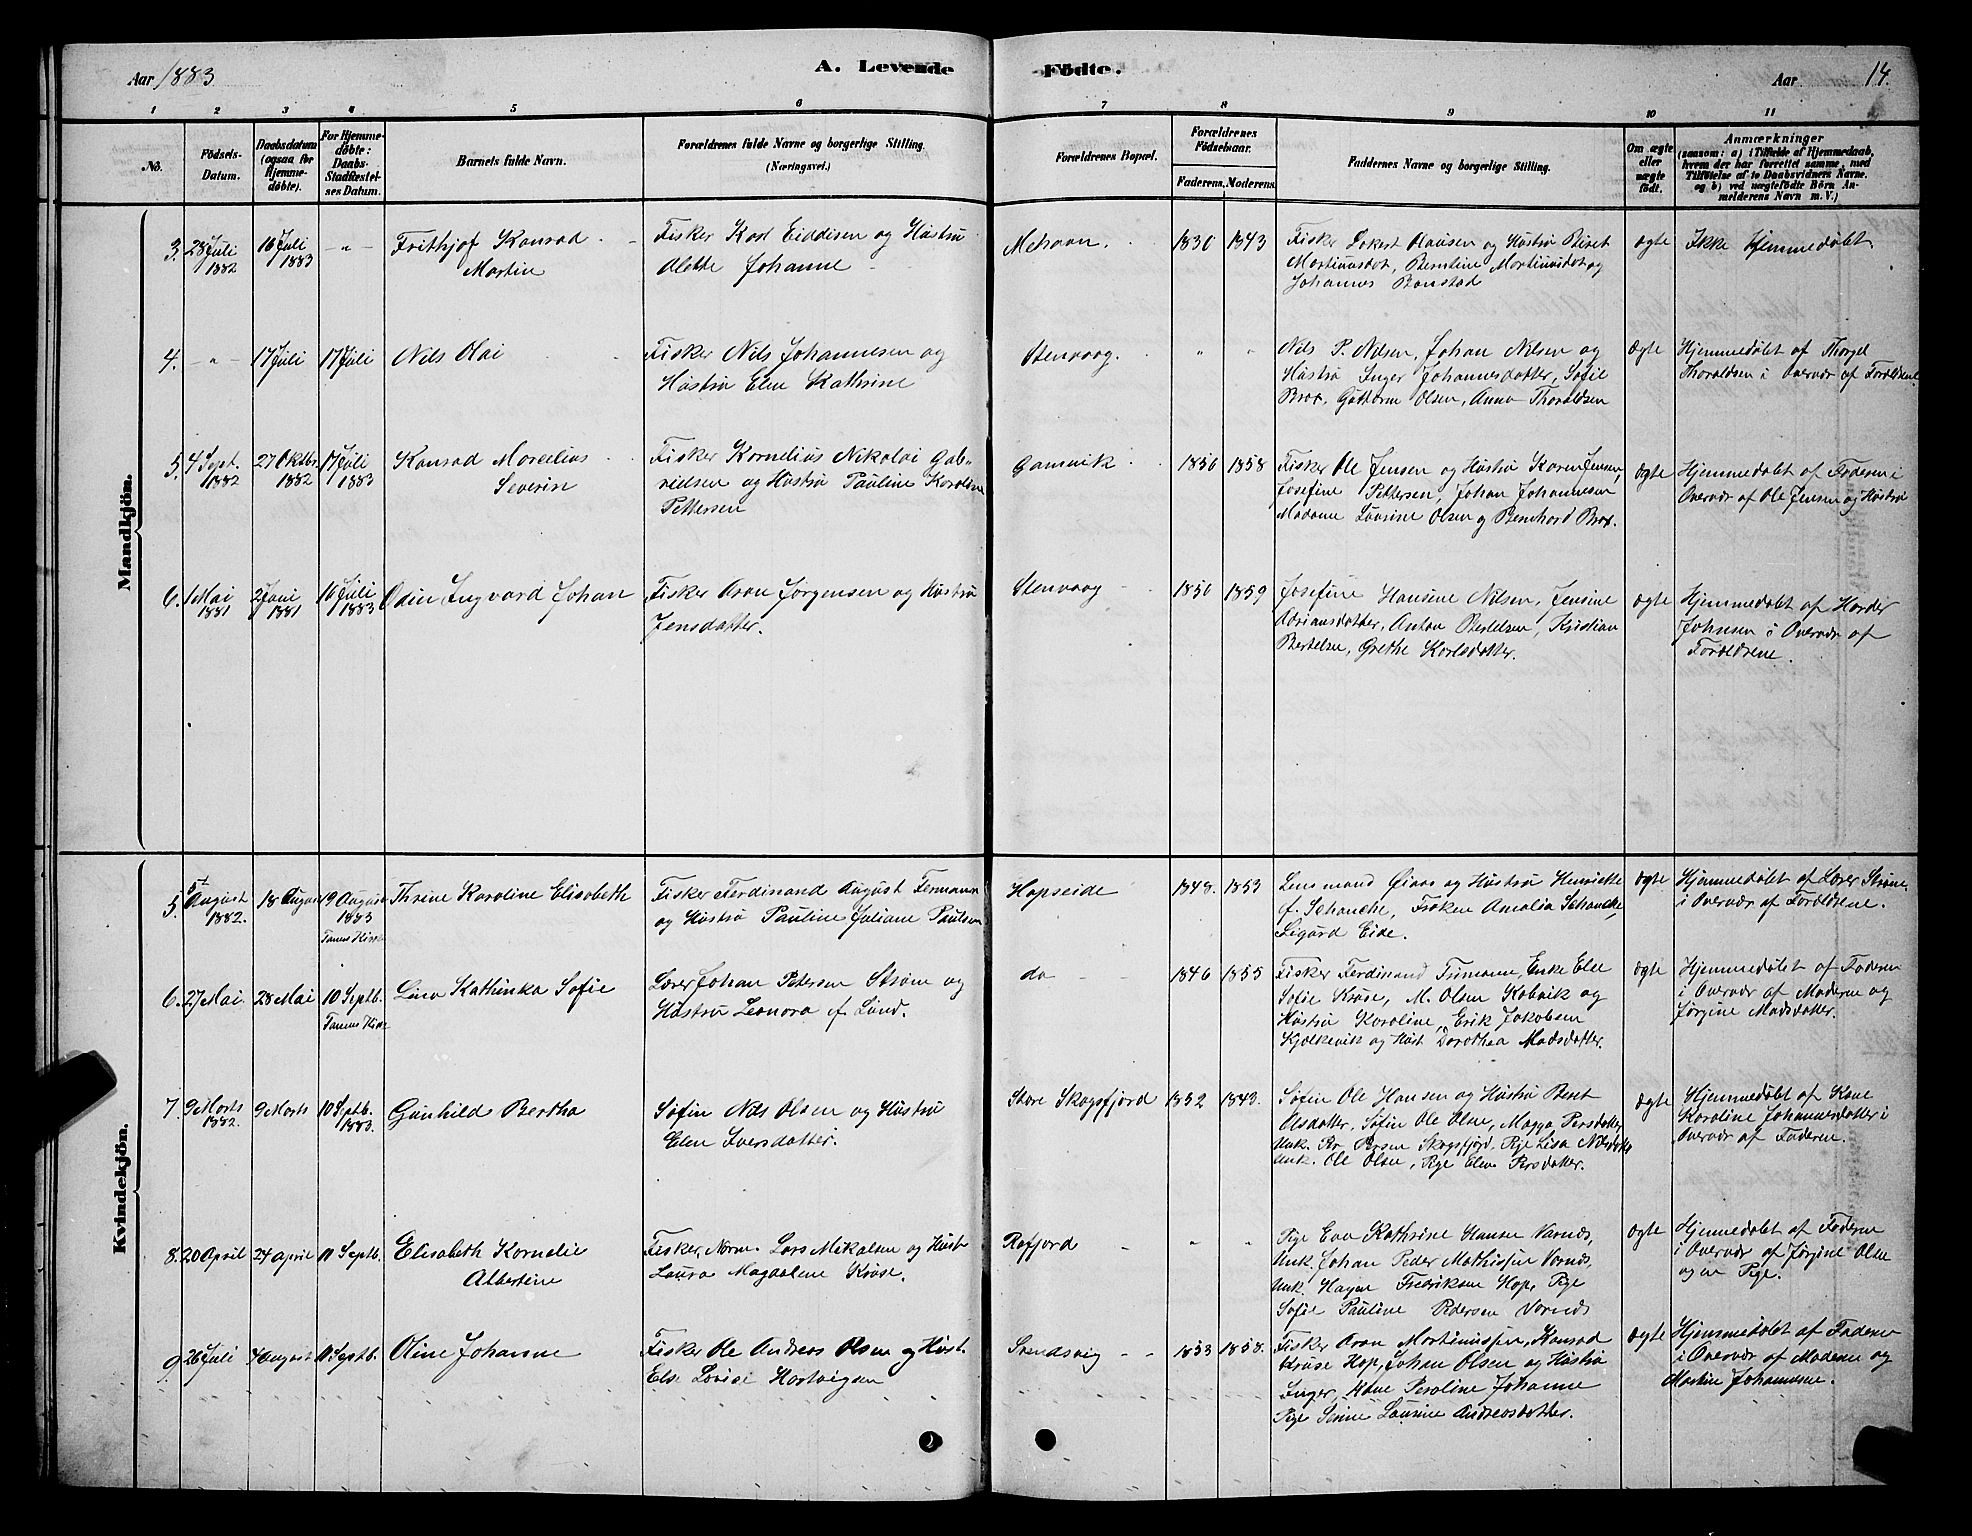 Aar 1883
A. Levende Födte.
Aar
14.
1 2 3 4 5 6 7 8 9 10 11
No.
Födsels-Datum.
Daabsdatum (ogsaa for Hjemmedøbte).
For Hjemmedøbte: Daabs-Stadfæstelses Datum.
Barnets fulde Navn.
Forældrenes fulde Navne og borgerlige Stilling. (Næringsvei.)
Forældrenes Bopæl.
Forældrenes Födselsaar.
Faderens. Moderens.
Faddernes Navne og borgerlige Stilling.
Om ægte eller uægte födt.
Anmærkninger
(saasom: a) i Tilfælde af Hjemmedaab, hvem der har forrettet samme, med Tilföielse af to Daabsvidners Navne, og b) ved uægtefödte Börn Anmelderens Navn m. V.)
Mandkjön.
3. 28 Juli 1882 16 Juli 1883 -"- Frithjof Konrad Martin
Fisker Karl Eiddisen og Hustru
Alette Johanne
Mehavn. 1830 1843
Fisker Hansen og Hustru Beret
Martinusdat, Berntine Martinusdat og
Johannes
ægte Ikke Hjemmedøbt
4. -"- 17 Juli 17 Juli Nils Olai
Fisker Nils Johannesen og
Hustru Elen Kathrine
Stenvaag. " "
Nils P. Nilsen, Johan Nilsen og
Hustru Inger Johannesdatter, Sofie
Brox, Guttorm Olsen, Anna Thoraldsen
Ægte Hjemmedøbt af
Thoraldsen i Overvær af Forældrene.
5. 4 Sept. 1882 27 Oktbr. 1882 17 Juli 1883 Konrad Marcelius Severin
Fisker Kornelius Nikolai Gab-
rielsen og Hustru Pauline Karoline
Pettersen
Gamvik 1850 1858
Fisker Ole Jensen og Hustru Karen Jensen,
Josefine Pettersen, Johan Johannesen
Madame Laurine Olsen og Bernhard Brox.
ægte Hjemmedøbt af Faderen i
Overvær af Ole Jensen og Hustru
6. 1 Mai 1881 2 Juni 1881 16 Juli 1883 Odin Ingvard Johan
Fisker Aron Jørgensen og Hustru
Jensdatter.
Stenvaag 1850 1859
Josefine Hansine Nilsen, Jensine
Adriansdatter, Anton Bertelsen, Kristian
Bertelsen, Grethe Karlsdatter.
ægte Hjemmedøbt af
Johnsen i Overvær af
Forældrene.
Kvindekjön.
5. 5 August 1882. 18 August 19 August 1883 Tanens Kirke Thrine Karoline Elisabeth
Fisker Ferdinand August Femann
og Hustru Pauline Juliane Paulsen
Hopseide 1848. 1853
Lensmand og Hustru Henriette
f. Schanche, Frøken Amalia Schanche,
Sigurd Eide.
ægte Hjemmedøbt af Lærer Strøm,
i Overvær af Forældrene.
6. 27 Mai 28 Mai 10 Septb. Tanens Kirke Lina Kathinka Sofie
Lærer Johan Petersen Strøm og
Hustru Leonora f. Lund.
do 1846 1855
Fisker Ferdinand Enke Else
Sofie Kruse, M. Olsen Kobvik og
Hustru Karoline, Erik Jakobsen
Kjelkevik og Hust Dorothea Madsdatter.
ægte Hjemmedøbt af Faderen
i Overvær af Moderen og
Jørgine Madsdatter.
7. 9 Marts 1882. 9 Marts 10 Septb. 1883. Gunhild Bertha
Søfin Nils Olsen og Hustru
Elen Iversdatter.
Store Skogsfjord 1852 1843.
Søfin Ole Hansen og Hustru Beret
Olsdatter, Søfin Ole Olsen, Magga Persdatter
Unk. Per Persen Skogsfjord. Pige Lisa Nilsdatter
Unk. Ole Olsen, Pige Elen Persdatter.
ægte Hjemmedøbt af Kone
Karoline Johannesdatter i
Overvær af Faderen.
8. 20 April 24 April 11 Septb. Elisabeth Kornelie Albertine
Fisker, Norm. Lars Mikalsen og Hust
Laura Magdalene Kruse.
Rafjord " "
Pige Eva Kathrine Hansen Varnæs,
Unk. Johan Peder Mathissen Varnæs,
Unk. Hagen Fredriksen Hop, Pige
Sofie Pauline Pedersen Varnæs
ægte Hjemmedøbt af Faderen
i Overvær af Jørgine Olsen
og en Pige.
9. 26 Juli 4 August 11 Septb. Oline Johanne
Fisker Ole Andreas Olsen og Hust.
Else Lovise Hartvigsen
1853 1858.
Fisker Aron Martinussen, Konrad
Kruse Hop, Johan Olsen og Hustru
Inger, Kone Peroline Johanne
Pige Laurine Andreasdatter.
ægte Hjemmedøbt af Faderen
i Overvær af Moderen og
Martin Johannesen.
2